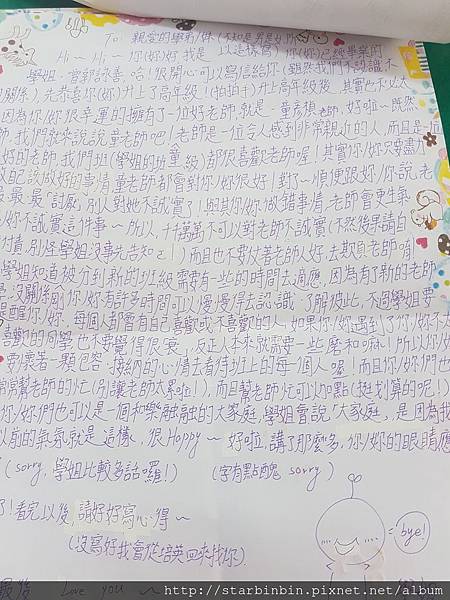 To: 親愛的學弟/妹(不知是男是女
Hi~Hi~你(妳)好 我是 以這樣寫) 你(妳)已經畢業的
學姐-宮郭詠善 哈!很開心可以寫信給你(雖然我們不認識不
關係),先恭喜你(妳)升上了高年級!(拍拍手)升上高年級後,其實也不以太
因為你/妳很幸運的擁有了一位好老師,就是-童彥禎老師,好啦~既然
師,我們就來說說童老師吧!老師是一位令人感到非常親近的人,而且是一位
好的老師,我們班(學姐的班級)都很喜歡老師喔!其實你/妳只要盡力
做該做好的事情童老師都會對你/妳很好!對了~順便跟你/妳說,老
最最最"討厭"別人對她不誠實了!與其你/妳做錯事情,老師會更生氣
/妳不誠實這件事~所以,千千萬萬不可以對老師不誠實(不然後果請自
付責,別怪學姐沒事先告知),而且也不要仗著老師人好,去欺負老師唷
學姐知道被分到新的班級需要有一些的時間去適應,因為有了新的老師
沒關係 你/妳有許多時間可以慢慢得去認識、了解彼此,不過學姐要
提醒你/妳,每個人都會有自己喜歡或不喜歡的人,如果你/妳遇到了你/妳不太
喜歡的同學也不要覺得很衰,反正人本來就需要一些磨和嘛!所以你/妳
要懷著一顆包容、接納的心情去看待班上的每一個人喔!而且你/妳們也
常常幫老師的忙(別讓老師太累啦!),而且幫老師忙可以加點(挺划算的呢!)
你/妳們也可以是一個和樂融融的大家庭,學姐會說「大家庭」是因為我
以前的氣氛就是這樣,很Happy~好啦,講了那麼多,你/妳的眼睛應
(sorry,學姐比較多話囉!) (字有點醜 sorry)
了!看完以後,請好好寫心得~
(沒寫好我會從培英回來找你)
bye!
最後 Love you ~
http://starbinbin.pixnet.net/album